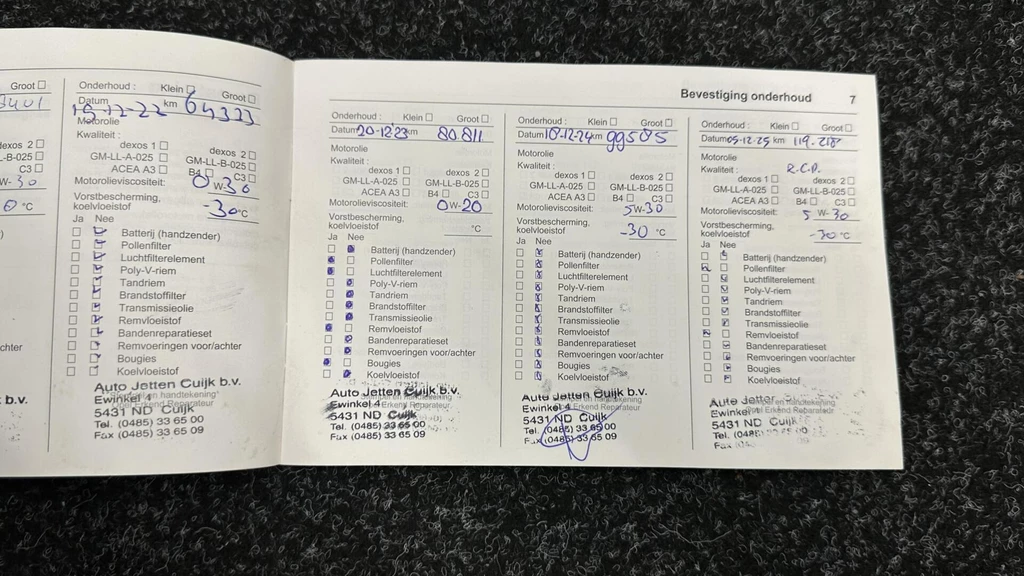 Groot
dexos 2
L-B-025
C3
W-30
0 °C
chter
b.v.
Onderhoud : Klein Groot
Datum 19-12-22 km 64323
Motorolie
Kwaliteit :
dexos 1 dexos 2
GM-LL-A-025 GM-LL-B-025
ACEA A3 B4 C3
Motorolieviscositeit: 0 W-30
Vorstbescherming,
koelvloeistof -30°C
Ja Nee
Batterij (handzender)
Pollenfilter
Luchtfilterelement
Poly-V-riem
Tandriem
Brandstoffilter
Transmissieolie
Remvloeistof
Bandenreparatieset
Remvoeringen voor/achter
Bougies
Koelvloeistof
Auto Jetten Cuijk b.v.
Ewinkel 4
5431 ND Cuijk
Tel. (0485) 33 65 00
Fax (0485) 33 65 09
Bevestiging onderhoud 7
Onderhoud : Klein Groot
Datum 20-12-23 km 80811
Motorolie
Kwaliteit :
dexos 1 dexos 2
GM-LL-A-025 GM-LL-B-025
ACEA A3 B4 C3
Motorolieviscositeit: 0W-20
Vorstbescherming,
koelvloeistof °C
Ja Nee
Batterij (handzender)
Pollenfilter
Luchtfilterelement
Poly-V-riem
Tandriem
Brandstoffilter
Transmissieolie
Remvloeistof
Bandenreparatieset
Remvoeringen voor/achter
Bougies
Koelvloeistof
Auto Jetten Cuijk b.v.
Ewinkel 4
5431 ND Cuijk
Tel. (0485) 33 65 00
Fax (0485) 33 65 09
Onderhoud : Klein Groot
Datum 10-12-24 km 99505
Motorolie
Kwaliteit :
dexos 1 dexos 2
GM-LL-A-025 GM-LL-B-025
ACEA A3 B4 C3
Motorolieviscositeit: 5W-30
Vorstbescherming,
koelvloeistof -30 °C
Ja Nee
Batterij (handzender)
Pollenfilter
Luchtfilterelement
Poly-V-riem
Tandriem
Brandstoffilter
Transmissieolie
Remvloeistof
Bandenreparatieset
Remvoeringen voor/achter
Bougies
Koelvloeistof
Auto Jetten Cuijk b.v.
Ewinkel 4 Erkend Reparateur
5431 ND Cuijk
Tel. (0485) 33 65 00
Fax (0485) 33 65 09
Onderhoud : Klein Groot
Datum 05-12-25 km 119.218
Motorolie
Kwaliteit : R.C.P.
dexos 1 dexos 2
GM-LL-A-025 GM-LL-B-025
ACEA A3 B4 C3
Motorolieviscositeit: 5 W-30
Vorstbescherming,
koelvloeistof -30°C
Ja Nee
Batterij (handzender)
Pollenfilter
Luchtfilterelement
Poly-V-riem
Tandriem
Brandstoffilter
Transmissieolie
Remvloeistof
Bandenreparatieset
Remvoeringen voor/achter
Bougies
Koelvloeistof
Auto Jetten
Ewinkel Erkend Reparateur
5431 ND Cuijk
Tel.